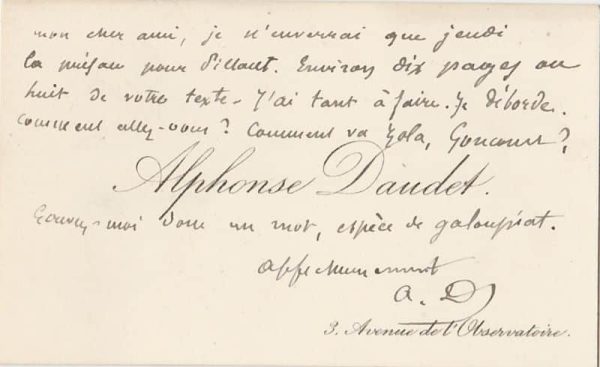 mon cher ami, je n'enverrai que jeudi
la préface pour Dillaut. Environ dix pages ou
huit de votre texte - J'ai tant à faire. Je déborde.
comment allez-vous? Comment va Zola, Goncourt?
Alphonse Daudet.
-moi donc un mot, espèce de galoupiat.
affectueusement
A. D
3. Avenue de l'Observatoire.